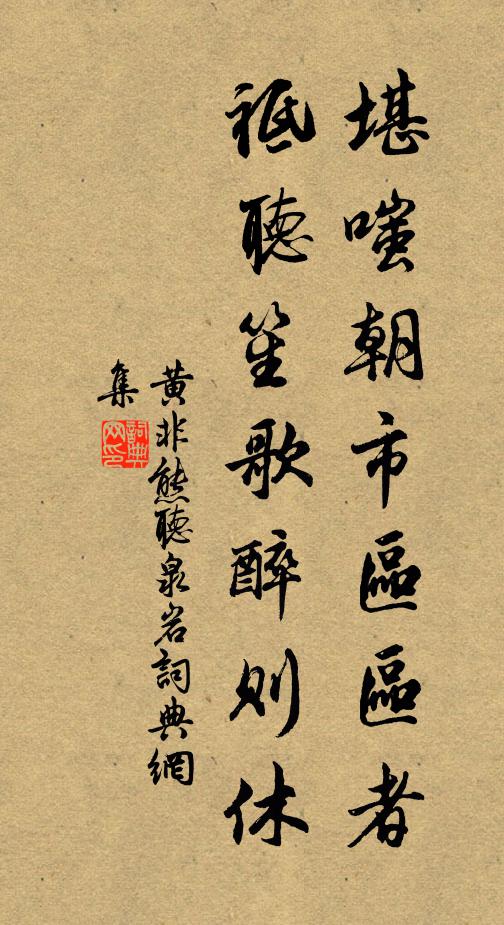 堪嗤朝市區區者
祗聽笙歌醉則休
黃非熊聽泉岩詞典網
集
詞典
网印